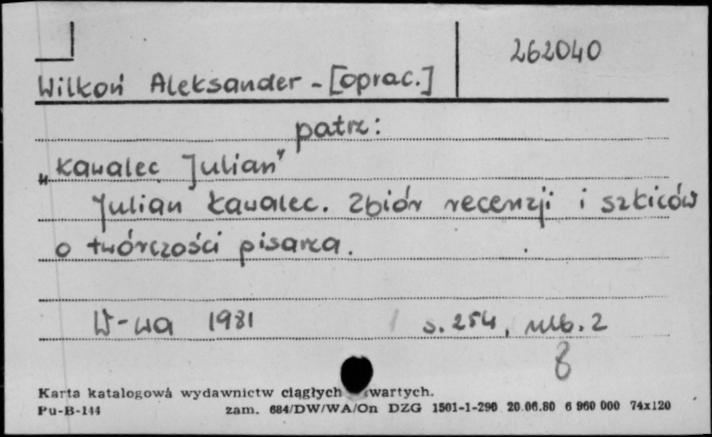 262040
Wilkoń Aleksander - [oprac.]
patrz:
„Kawalec Julian"
Julian Kawalec. Zbiór recenzji i szkiców
o twórczości pisarza.
W-wa 1981 s. 254, nlb. 2
8
Karta katalogowa wydawnictw ciągłych wartych.
Pu-B-144 zam. 684/DW/WA/On DZG 1501-1-290 20.06.80 6 960 000 74x120